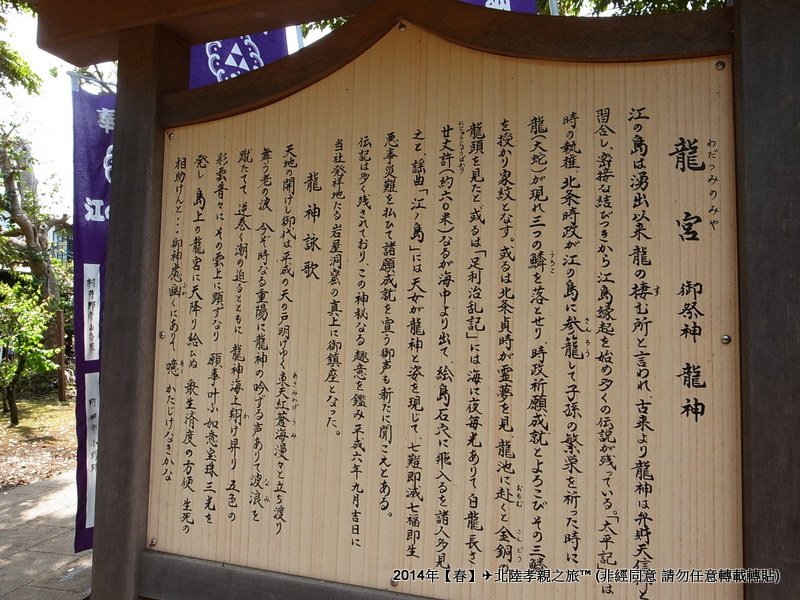 龍宮 御祭神 龍神
わだつみのみや
江の島は湧出以来 龍の棲む所と言われ、古来より龍神は弁財天信仰と
す
習合し、密接な結びつきから江島縁起を始め多くの伝説が残っている。「太平記」には
時の執権、北条時政が江の島に参籠して子孫の繁栄を祈った時に
さんろう
龍(大蛇)が現れ三つの鱗を落とせり、時政祈願成就とよろこびその三鱗
うろこ
を授かり家紋となす。或るは北条貞時が霊夢を見、龍池に赴くと金銅の
おもむ
こんどう
龍頭を見たと、或るは「足利治乱記」には海に夜毎光ありて白龍長さ
廿丈許(約六〇米)なるが海中より出て、絵島石穴に飛入るを諸人多見
にじゅうじょうばかり
之と、謡曲「江ノ島」には天女が龍神と姿を現じて、七難即滅七福即生
悪事災難を払ひて諸願成就を宣う御声も新たに聞こえとある。
伝記は多く残されており、この神秘なる趣意を鑑み平成六年九月吉日に
当社発祥地たる岩屋洞窟の真上に御鎮座となった。
龍神詠歌
天地の開けし御代は平成の天の戸明けゆく東天紅蒼海漫々と立ち渡り
舞う老の波 今ぞ時なる重陽に龍神の吟ずる声ありて波浪を
なみ
蹴たてて 逆巻く潮の迫るとともに 龍神海上翔け昇り 五色の
か
彩雲昔々に その雲上に顕すなり 願事叶ふ如意宝珠三光を
発し 島上の龍宮に天降り給ひぬ 衆生済度の方便 生死の
相助けんと・・・御神慮幽くにありて 噫 かたじけなきかな
あ
江の
2014年【春】✈北陸孝親之旅™ (非經同意 請勿任意轉載轉貼)